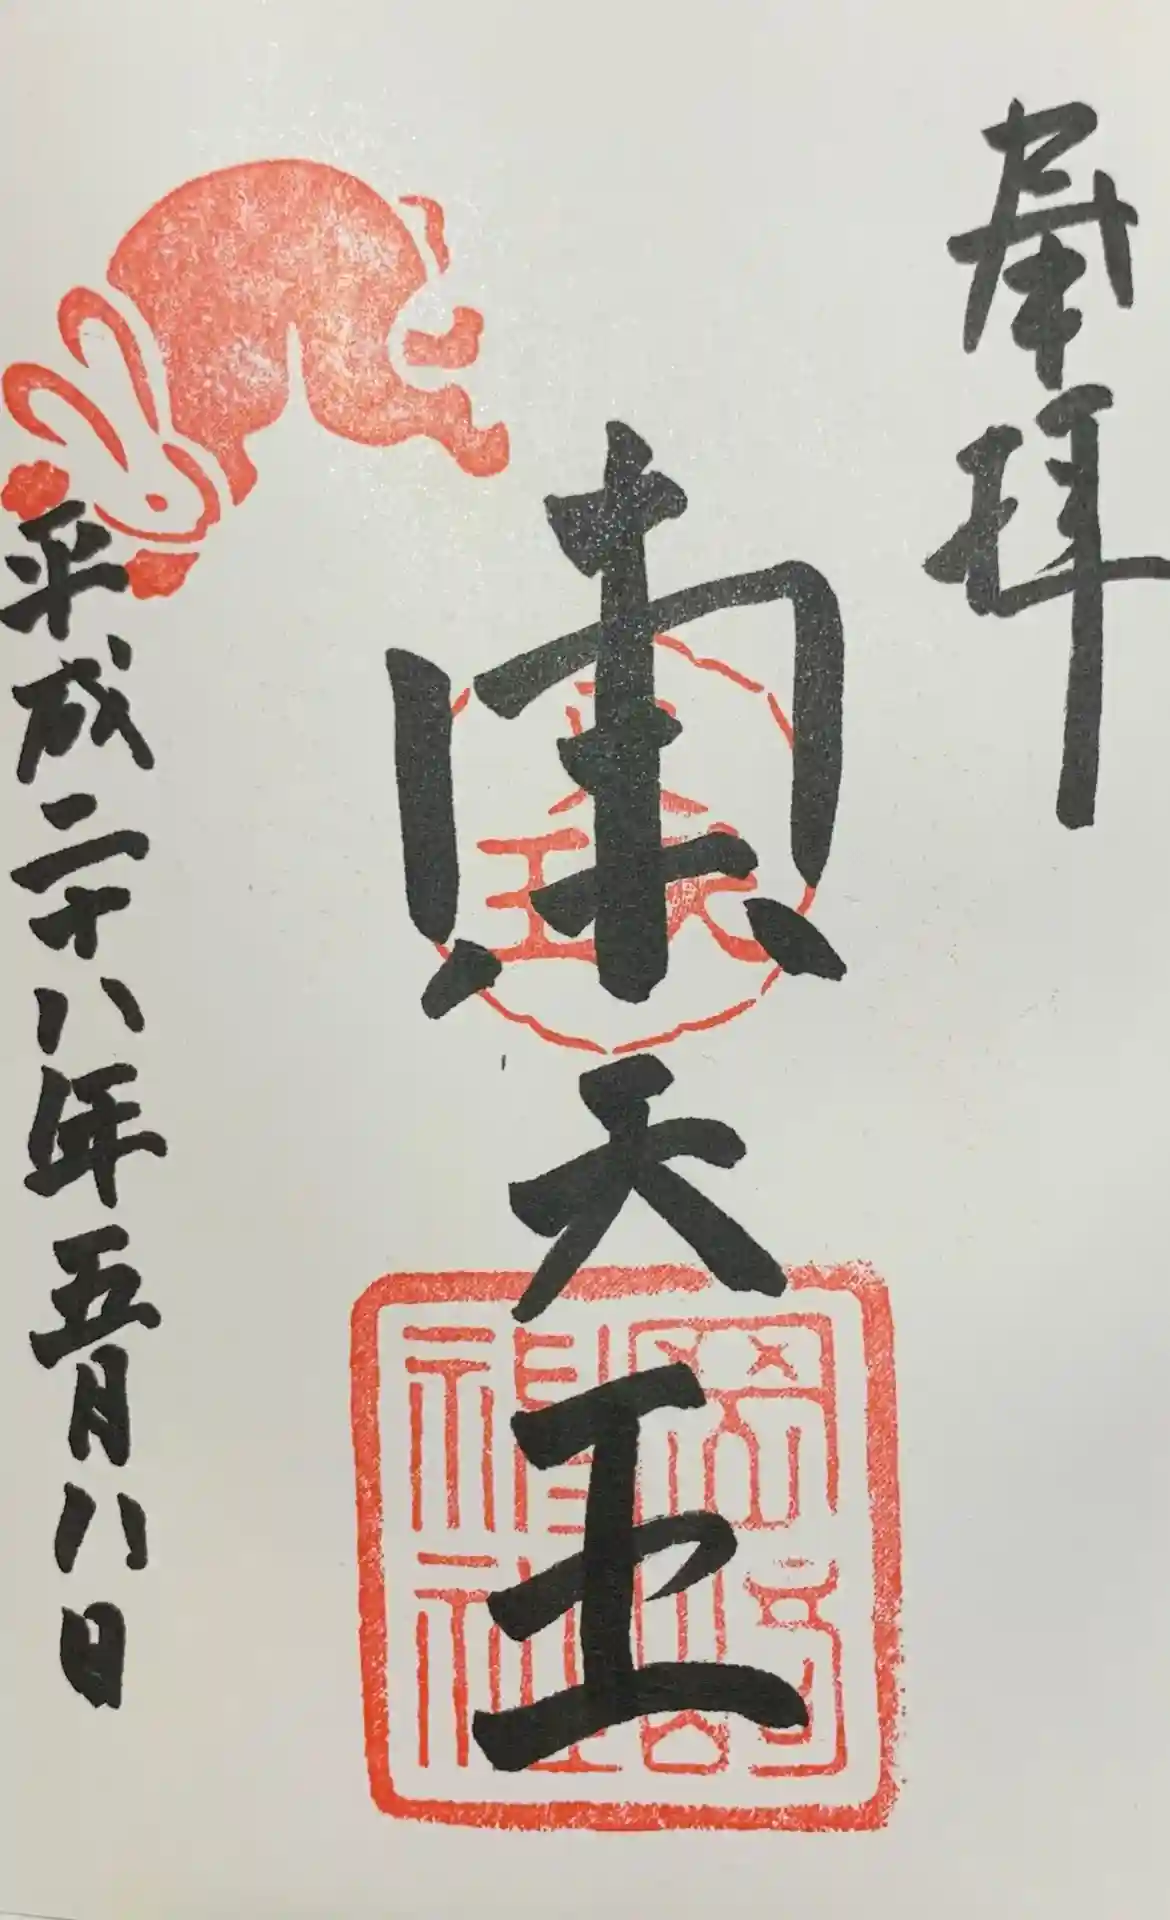 奉拝
東天王
天王
岡﨑神社
平成二十八年五月八日